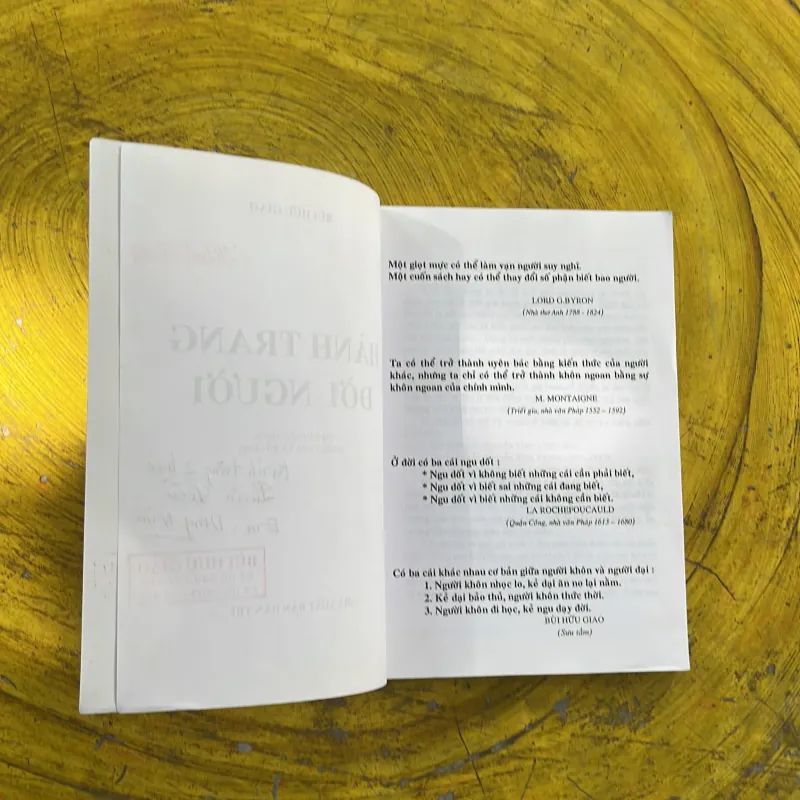 BÙI HỮU GIAO
HÀNH TRANG
ĐỜI NGƯỜI
BÙI HỮU GIAO
Một giọt mực có thể làm vạn người suy nghĩ.
Một cuốn sách hay có thể thay đổi số phận biết bao người.
LORD G.BYRON
(Nhà thơ Anh 1788 - 1824)
Ta có thể trở thành uyên bác bằng kiến thức của người
khác, nhưng ta chỉ có thể trở thành khôn ngoan bằng sự
khôn ngoan của chính mình.
M. MONTAIGNE
(Triết gia, nhà văn Pháp 1552 – 1592)
Ở đời có ba cái ngu dốt :
* Ngu dốt vì không biết những cái cần phải biết,
* Ngu dốt vì biết sai những cái đang biết,
* Ngu dốt vì biết những cái không cần biết.
LA ROCHEFOUCAULD
(Quận Công, nhà văn Pháp 1613 – 1680)
Có ba cái khác nhau cơ bản giữa người khôn và người dại :
1. Người khôn nhọc lo, kẻ dại ăn no lại nằm.
2. Kẻ dại bảo thủ, người khôn thức thời.
3. Người khôn đi học, kẻ ngu dạy đời.
BÙI HỮU GIAO
(Sưu tầm)